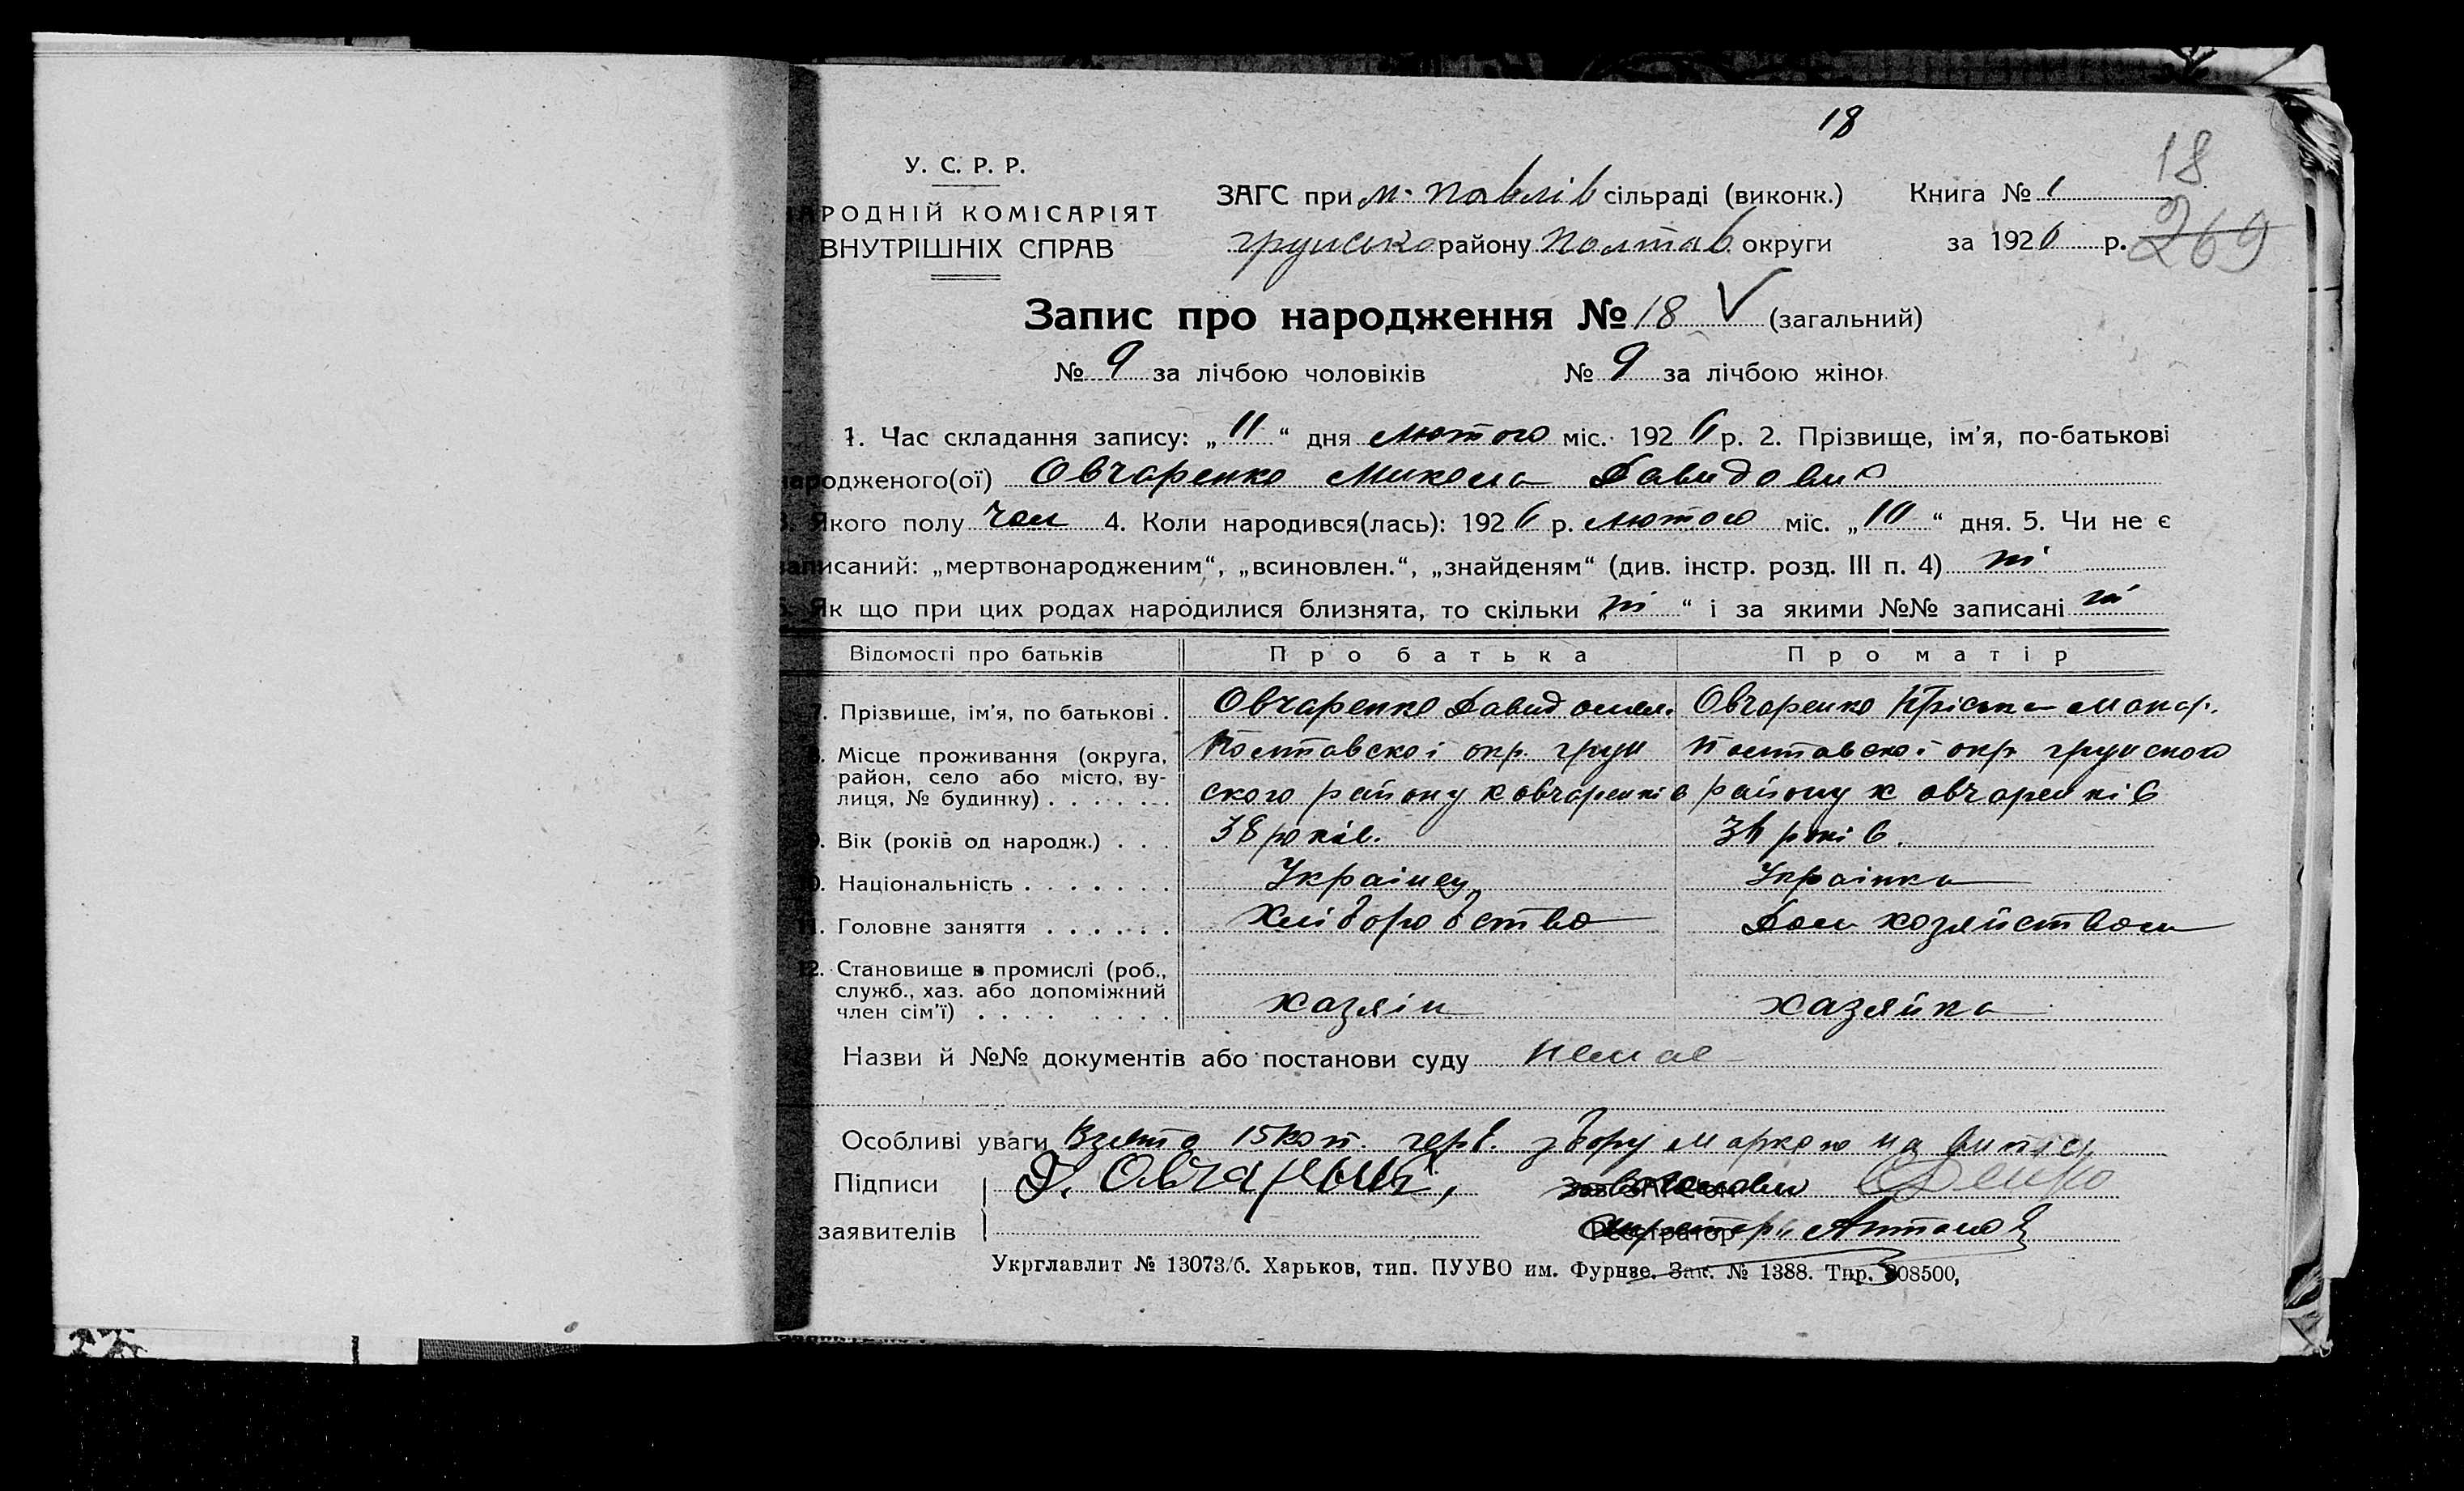 18
18
У. С. Р. Р.
НАРОДНІЙ КОМІСАРІЯТ
ВНУТРІШНІХ СПРАВ
ЗАГС при м. павлів сільраді (виконк.)
грунсько району Полтав округи
Книга № 1
за 1926 р.
269
Запис про народження № 18 V (загальний)
№ 9 за лічбою чоловіків № 9 за лічбою жінок
1. Час складання запису: „ 11 “ дня лютого міс. 1926 р. 2. Прізвище, ім’я, по-батькові
народженого(ої) Овчаренко Микола Давидович
3. Якого полу чол 4. Коли народився(лась): 1926 р. лютого міс. „ 10 “ дня. 5. Чи не є
записаний: „мертвонародженим“, „всиновлен.“, „знайденям“ (див. інстр. розд. III п. 4) ні
6. Як що при цих родах народилися близнята, то скільки „ ні “ і за якими №№ записані ні
Відомості про батьків Про батька Про матір
7. Прізвище, ім’я, по батькові . Овчаренко Давид омел. Овчаренко Пріська макар.
8. Місце проживання (округа, район, село або місто, вулиця, № будинку) . . . . . .
Полтавскоі окр. грун
ского району х овчаренків
Полтавскоі окр грунского
району х овчаренків
9. Вік (років од народж.) . . . 38 років. років.
10. Національність . . . . . . . Украінец Украінка
11. Головне заняття . . . . . . Хліборобство Дом хозяйством
12. Становище в промислі (роб.,
служб., хаз. або допоміжний
член сім’ї) . . . . . . . . хазяін хазяйка
Назви й №№ документів або постанови суду немае
Особливі уваги Взято 15 коп. черв. збору маркою на випісі
Підписи Д. Овчаренко,
заявителів
Укрглавлит № 13073/б. Харьков, тип. ПУУВО им. Фурнзе. Зак. № 1388. Тпр. 308500,